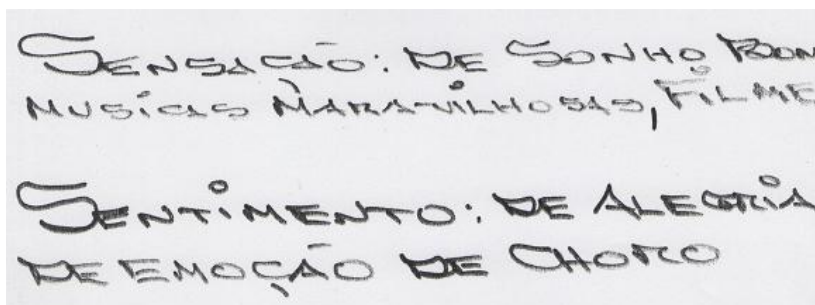 SENSAÇÃO: DE SONHO BOM
MUSÍCAS MARAVILHOSAS, FILME
SENTIMENTO: DE ALEGRIA
DE EMOÇÃO DE CHORO